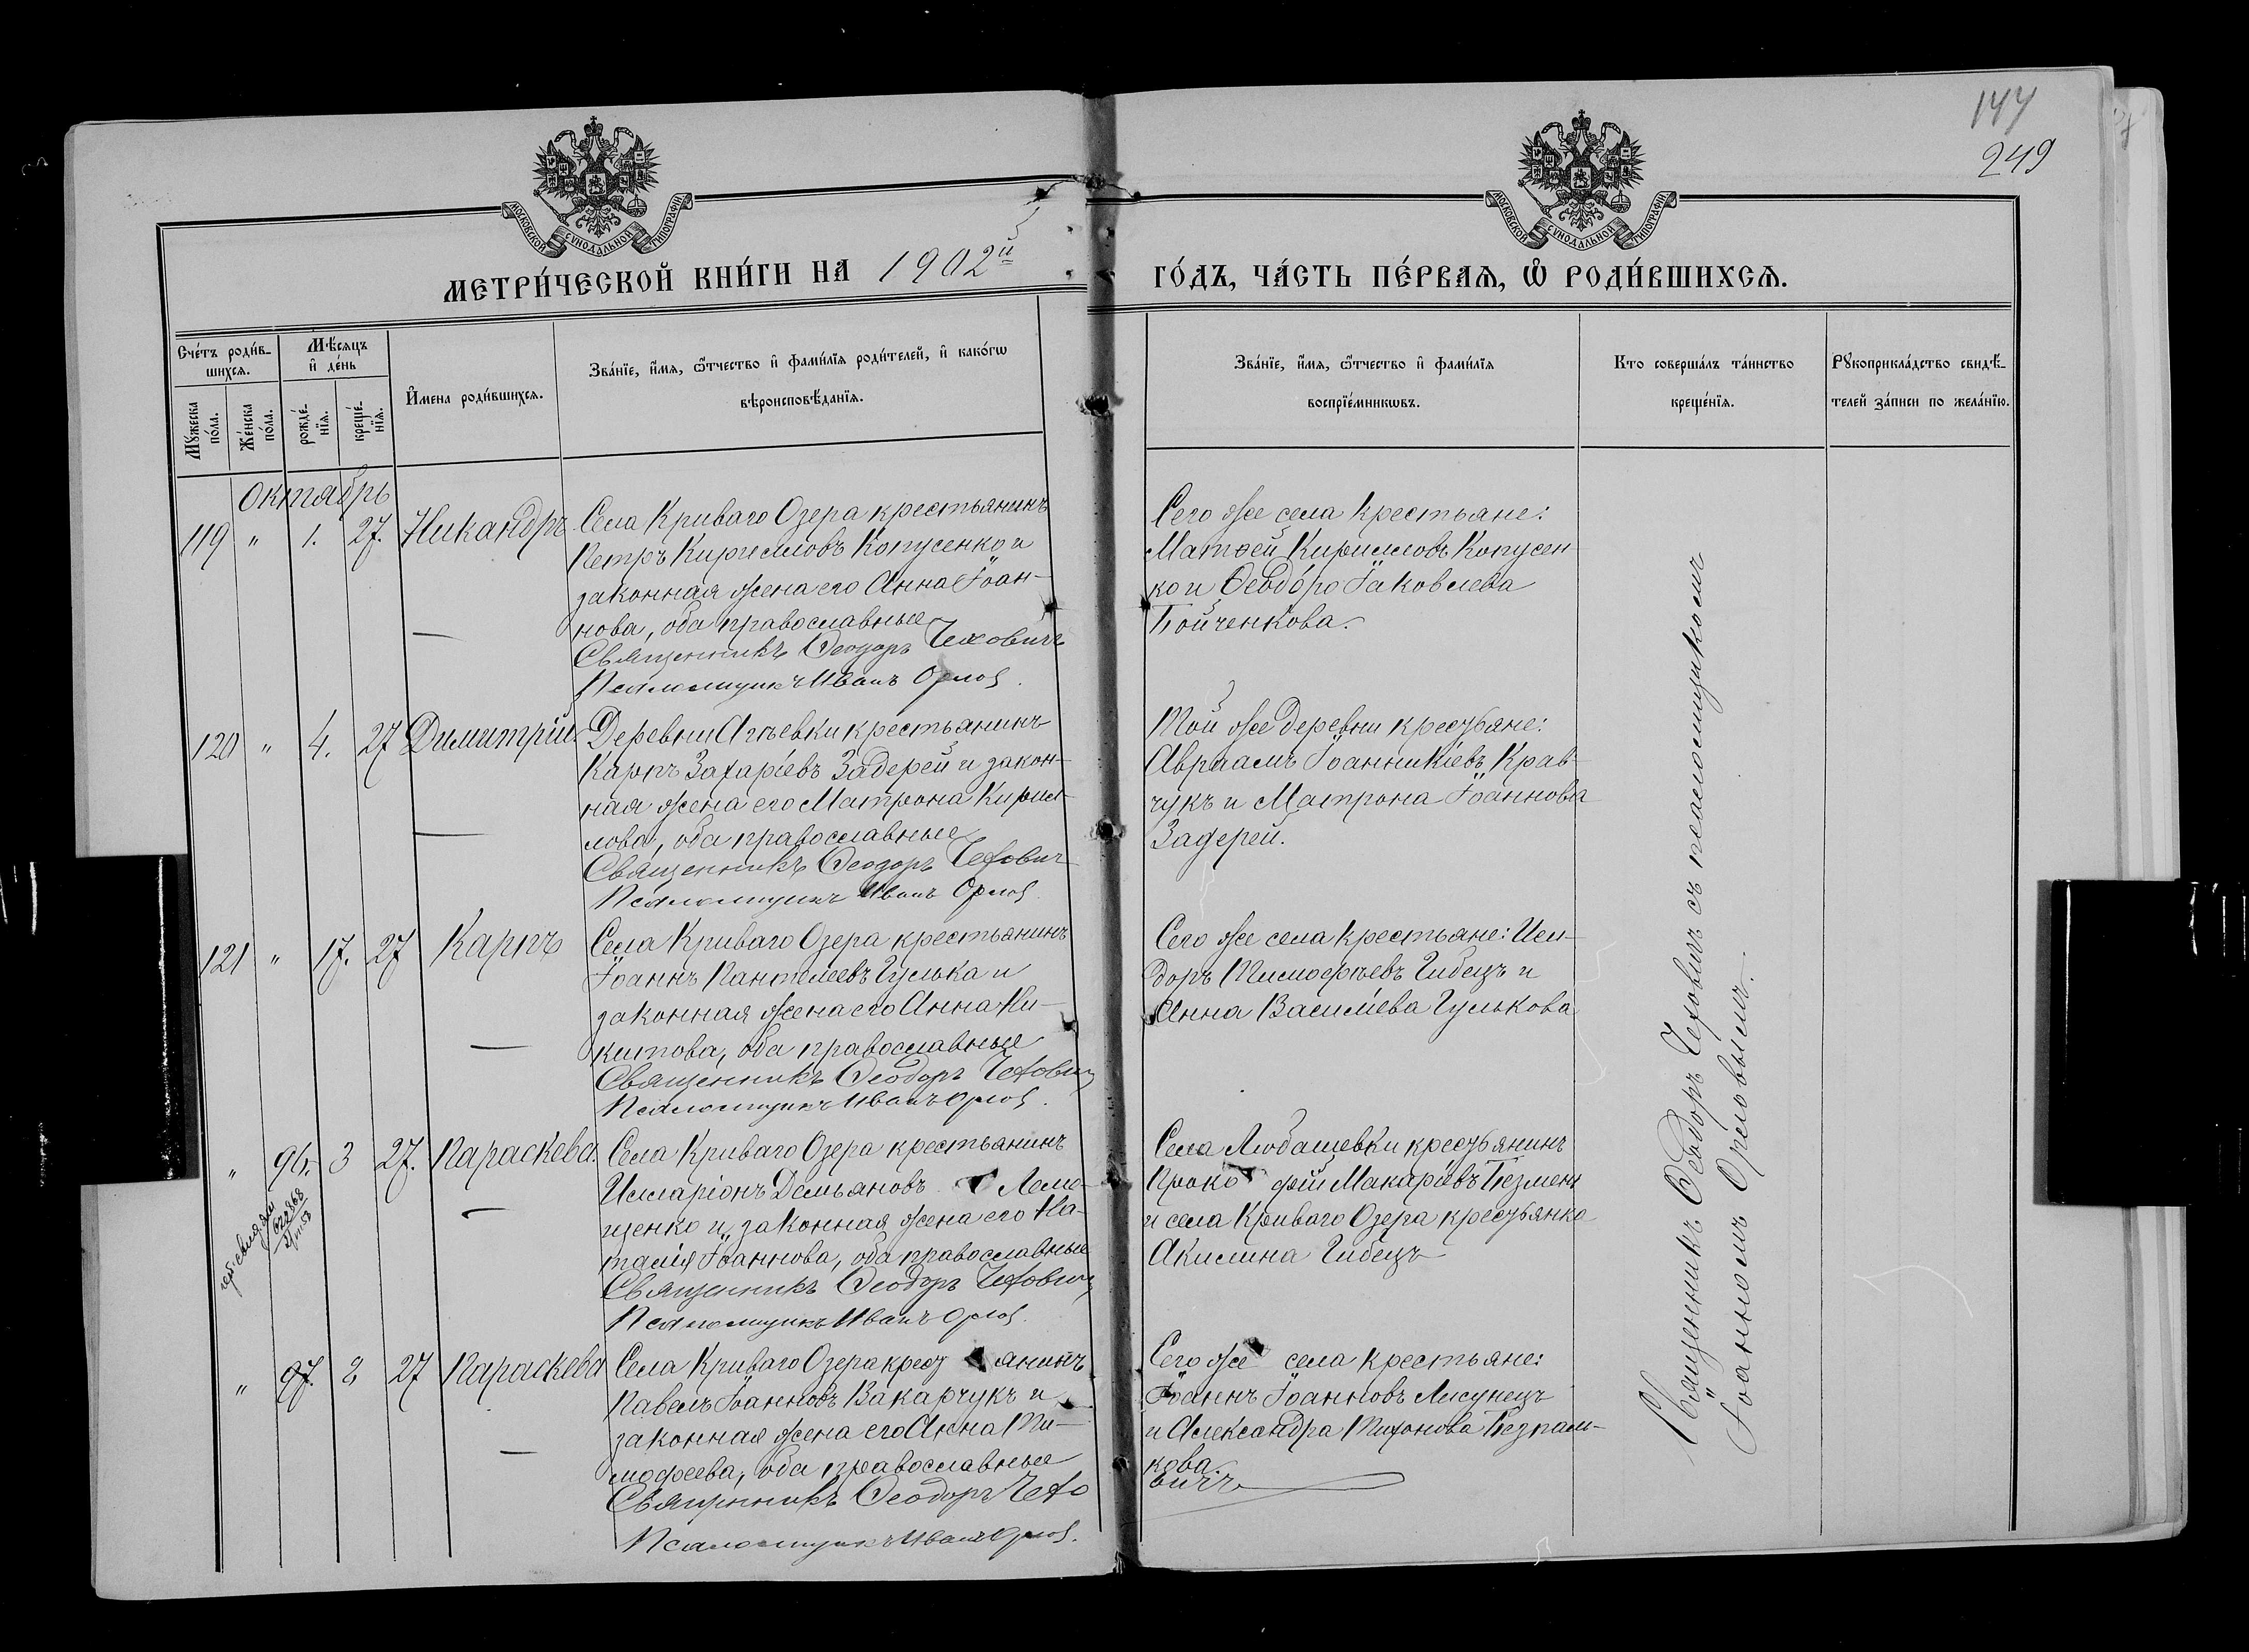 144
249
МОСКОВСКОЙ СѴНОДАЛЬНОЙ ТИПОГРАФІИ
МОСКОВСКОЙ СѴНОДАЛЬНОЙ ТИПОГРАФІИ
МЕТРИ́ЧЕСКОЙ КНИ́ГИ НА 1902й
ГО́ДЪ, ЧА́СТЬ ПЕ́РВАѦ, Ѡ҆ РОДИ́ВШИХСѦ.
Сче́тъ роди́в-
шихсѧ.
Мꙋ́жеска
по́ла.
Же́нска
по́ла.
Мѣ́сѧцъ
и҆ де́нь
рожде́-
нїѧ.
креще́-
нїѧ.
И҆мена роди́вшихсѧ.
Зва́нїе, и҆́мѧ, ѻ҆́тчество и҆ фами́лїѧ роди́телей, и҆ како́гѡ
вѣроисповѣ́данїѧ.
Зва́нїе, и҆́мѧ, ѻ҆́тчество и҆ фами́лїѧ
воспрїе́мникѡвъ.
Кто соверша́лъ та́инство
креще́нїѧ.
Рꙋкоприкла́дство свидѣ́-
телей за́писи по жела́нїю.
Октябрь
119 " 1. 27. Никандръ
Села Криваго Озера крестьянинъ
Петръ Кирилловъ Копусенко и
законная жена его Анна Іоан-
нова, оба православные
Священникъ Ѳеодоръ Чехович
Псаломщикъ Иванъ Орлов.
Сего же села крестьяне:
Матѳей Кирилловъ Копусен-
ко и Ѳеодора Іаковлева
Бойченкова.
120 " 4. 27 Димитрій
Деревни Агѣевки крестьянинъ
Карпъ Захаріевъ Задерей и закон-
ная жена его Матрона Кирил-
лова, оба православные
Священникъ Ѳеодоръ Чехович
Псаломщикъ Иванъ Орлов
Той же деревни крестьяне:
Авраамъ Іоанникіевъ Крав-
чукъ и Матрона Іоаннова
Задерей.
121 " 17. 27 Карпъ
Села Криваго Озера крестьянинъ
Іоаннъ Пантелеевъ Гулька и
законная жена его Анна Ни-
китова, оба православные
Священникъ Ѳеодоръ Чехович
Псаломщикъ Иванъ Орлов.
Сего же села крестьяне: Иси-
доръ Тимоѳѣевъ Гибецъ и
Анна Василіева Гулькова
" 96. 3 27. Параскева.
Села Криваго Озера крестьянинъ
Илларіонъ Демьяновъ Леме-
щенко и законная жена его На-
талія Іоаннова, оба православные
Священникъ Ѳеодоръ Чехович
Псаломщикъ Иванъ Орлов.
Села Любашевки крестьянинъ
Проко фій Макаріевъ Безмен
и села Криваго Озера крестьянка
Акилина Гибецъ
" 97. 2 27 Параскева
Села Криваго Озера крест янинъ
Павелъ Іоанновъ Вакарчукъ и
законная жена его Анна Ти-
моѳеева, оба православные
Священникъ Ѳеодоръ Чехо
вичъ
Псаломщикъ Иванъ Орлов.
Сего же села крестьяне:
Іоаннъ Іоанновъ Лисунецъ
и Александра Тихонова Безпаль-
кова.
Священникъ Ѳеодоръ Чеховичъ съ псаломщикомъ
Іоанномъ Орловымъ.